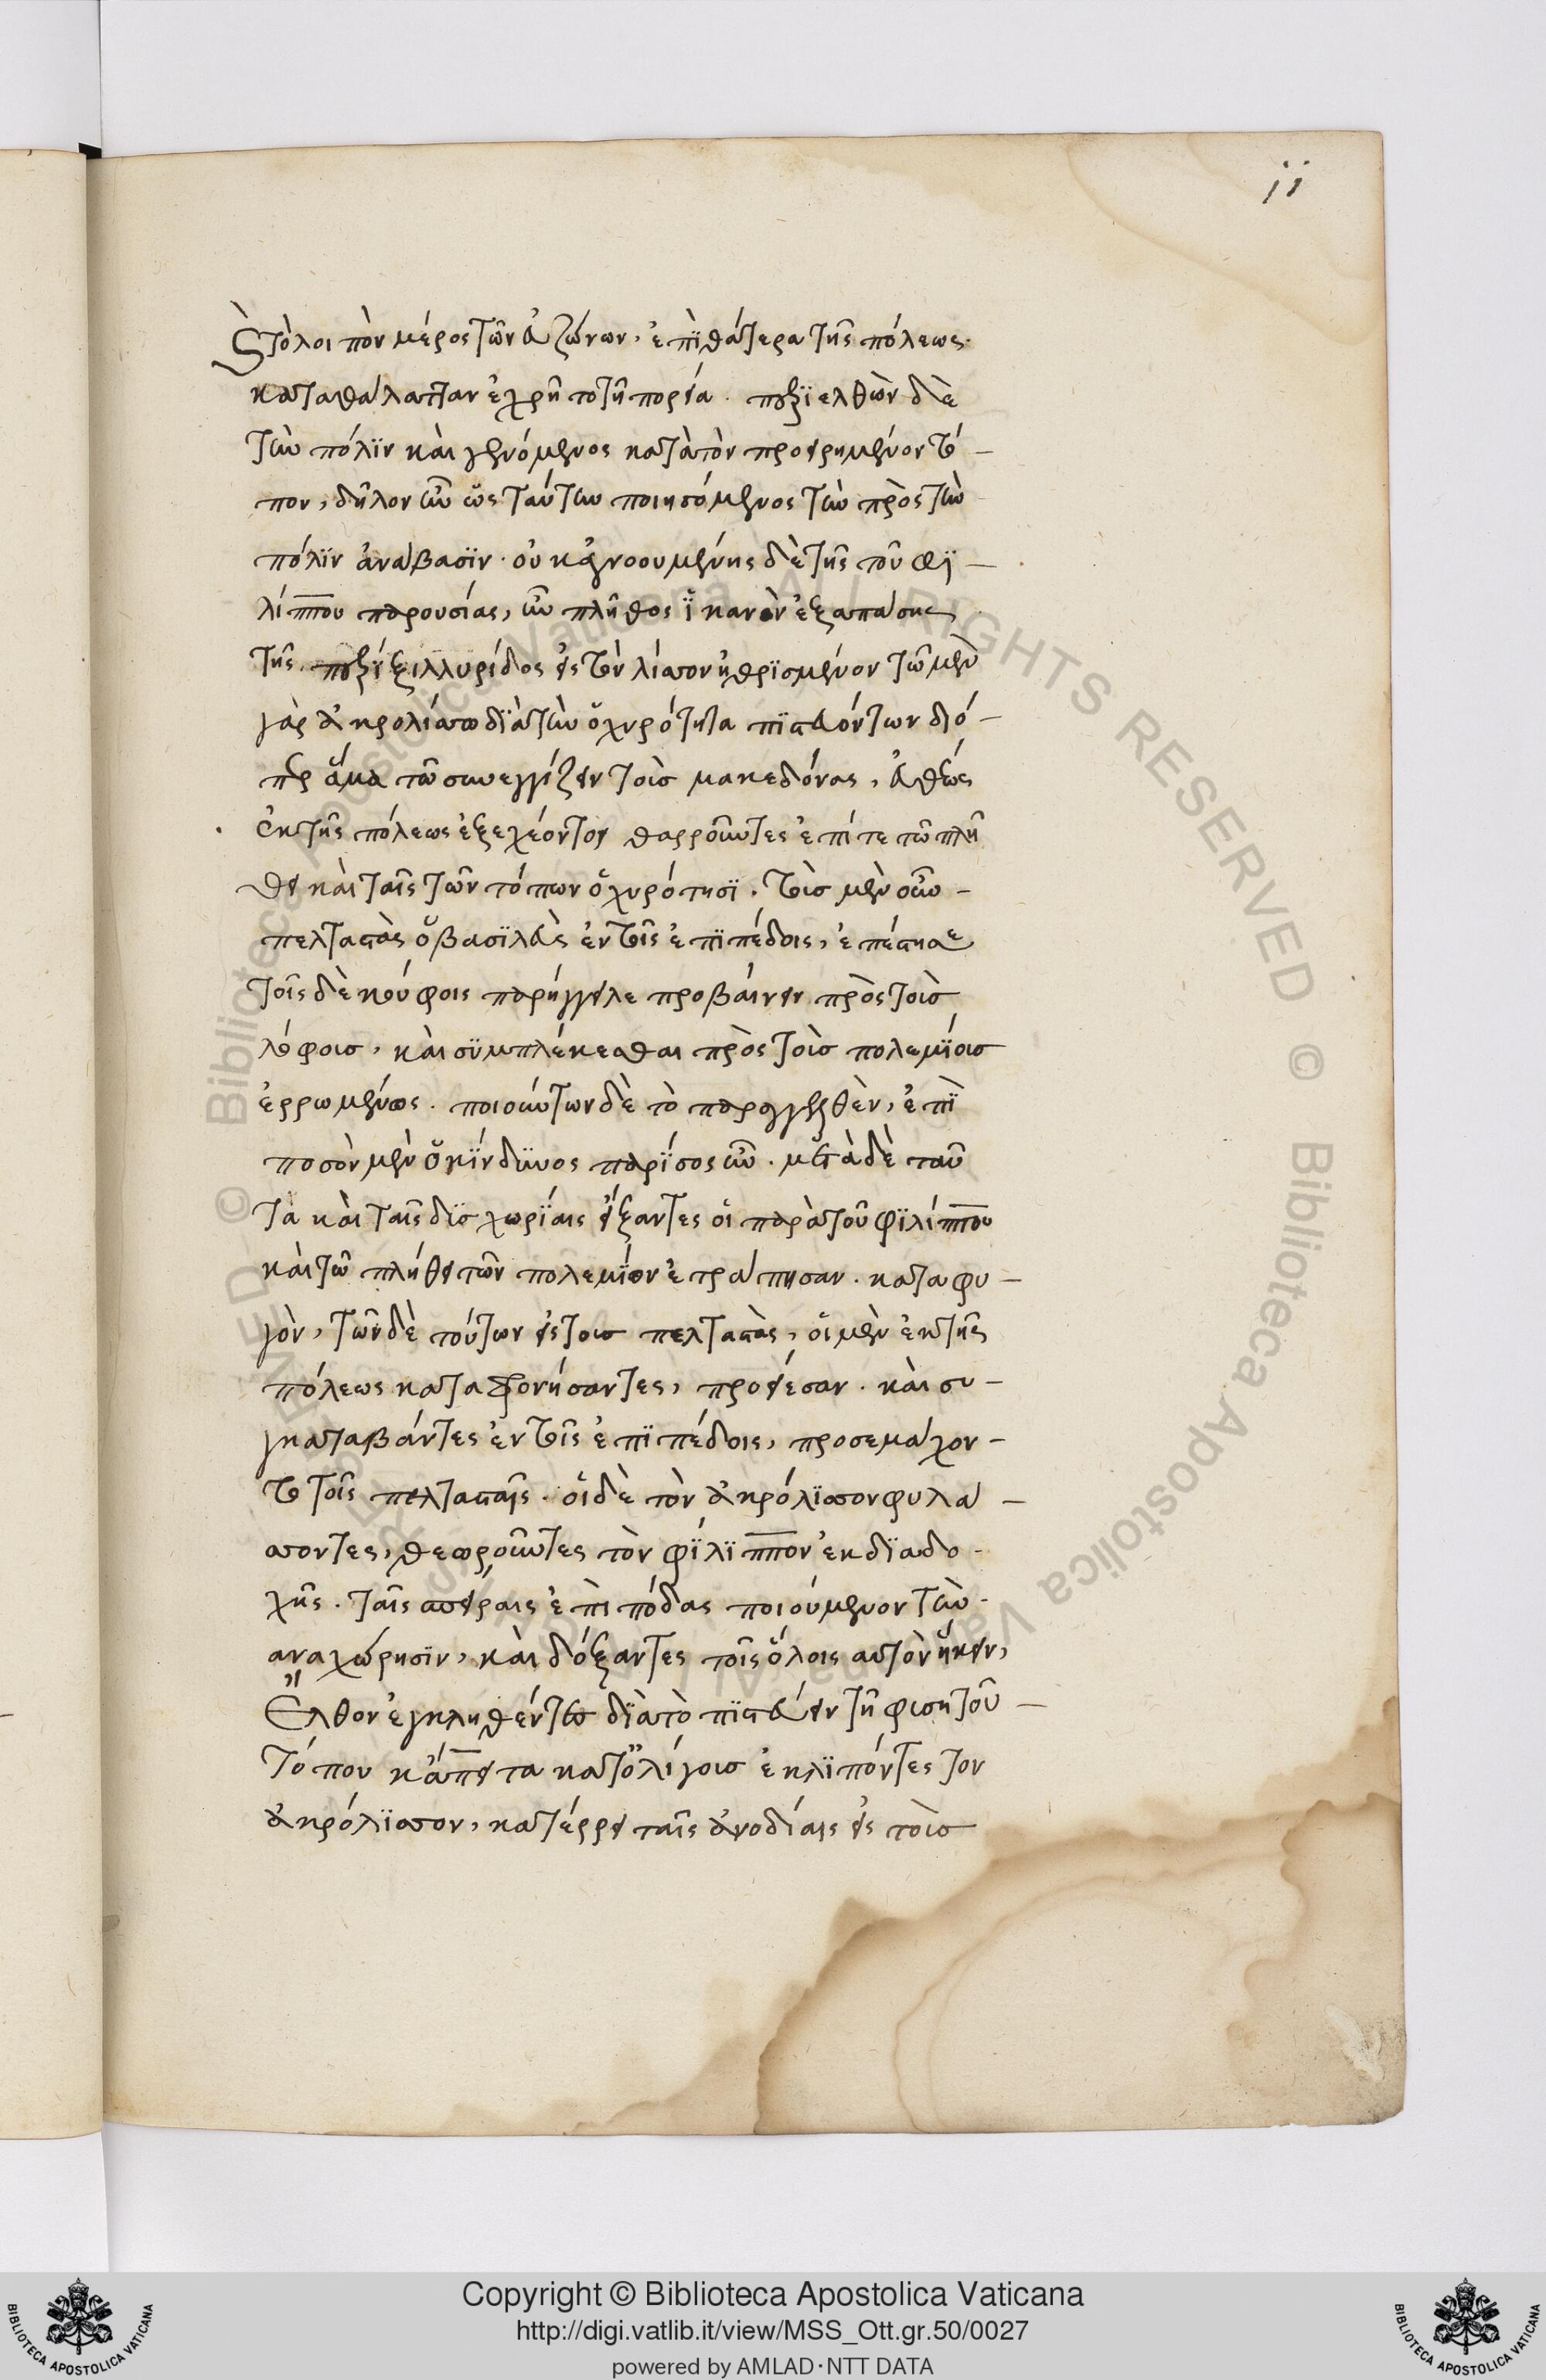 Τὸ λοιπὸν μέρος τῶν εὐζώνων, ἐπὶ θάτερα τῆς πόλεως
κατα θάλατταν ἐχρῆτο τῆ πορεία. περϊελθὼν δὲ
τὴν πόλϊν καὶ γενόμενος κατὰ τὸν προειρημένον τό-
πον, δῆλον ἦν ὥς ταύτην ποιησόμενος τὴν πρὸς τὴν
πόλϊν ἀνάβασϊν. οὐκ ἀγνοουμένης δὲ τῆς τοῦ φϊ-
λίππου παρουσίας, ἦν πλῆθος ἵκανὸν ἐξαπάσης
τῆς περϊξιλλυρίδος εἰς τὸν λίσσον ἠθρϊσμένον τῶ μὲν
γὰρ ἀκρολίσσω διὰ τὴν ὀχυρότητα πϊστευόντων διό-
περ ἅμα τῶ συνεγγίζειν τοὺσ μακεδόνας, εὐθέως
ἐκ τῆς πόλεως ἐξεχέοντοι θαρροῦντες ἐπί τε τῶ πλή
θει καὶ ταῖς τῶν τόπων ὀχυρότησϊ. τοὺσ μὲν οὖν -
πελταστὰς ὁ βασϊλεὺς ἐν τοῖς ἐπϊπέδοις, ἐπέστησε
τοῖς δὲ κούφοις παρήγγειλε προβαίνειν πρὸς τοὺσ
λόφουσ, καὶ συμπλέκεσθαι πρὸς τοὺσ πολεμίουσ
ἐρρωμένως. ποιούντων δὲ τὸ παραγγελθὲν, ἐπϊ
ποσὸν μὲν ὁ κϊνδυνος παρϊσος ἦν. μετὰ δὲ ταῦ
τα καὶ ταῖς δϊσχωρϊαις εἴξαντες οἱ παρὰ τοῦ φϊλίππου
καὶ τῶ πλήθει τῶν πολεμϊων ἐτράπησαν. καταφυ-
γὸν, τῶν δὲ τούτων εἰς τουσ πελταστὰς, οἱ μὲν ἐκ τῆς
πόλεως καταφρονήσαντες, προείεσαν. καὶ συ-
γκαταβάντες ἐν τοῖς ἐπϊπέδοις, προσεμάχον-
το τοῖς πελτασταῖς. οἱ δὲ τὸν ἀκρόλϊσσον φυλά -
σσοντες, θεωροῦντες τὸν φϊλϊππον ἐκ δϊαδο-
χῆς. ταῖς σπείραις ἐπὶ πόδας ποιούμενον τὴν-
αναχώρησϊν, καὶ δόξαντες τοῖς ὅλοις αὐτὸν ἥκειν,
Ἔλθον ἐγκληθέντες διὰ τὸ πϊστεύειν τῆ φυση τοῦ -
τόπου κἄπειτα κατ' ὀλίγουσ ἐκλϊπόντες τον
ἀκρόλϊσσον, κατέρρει ταῖς ἀνοδίαις εἰς τοὺσ